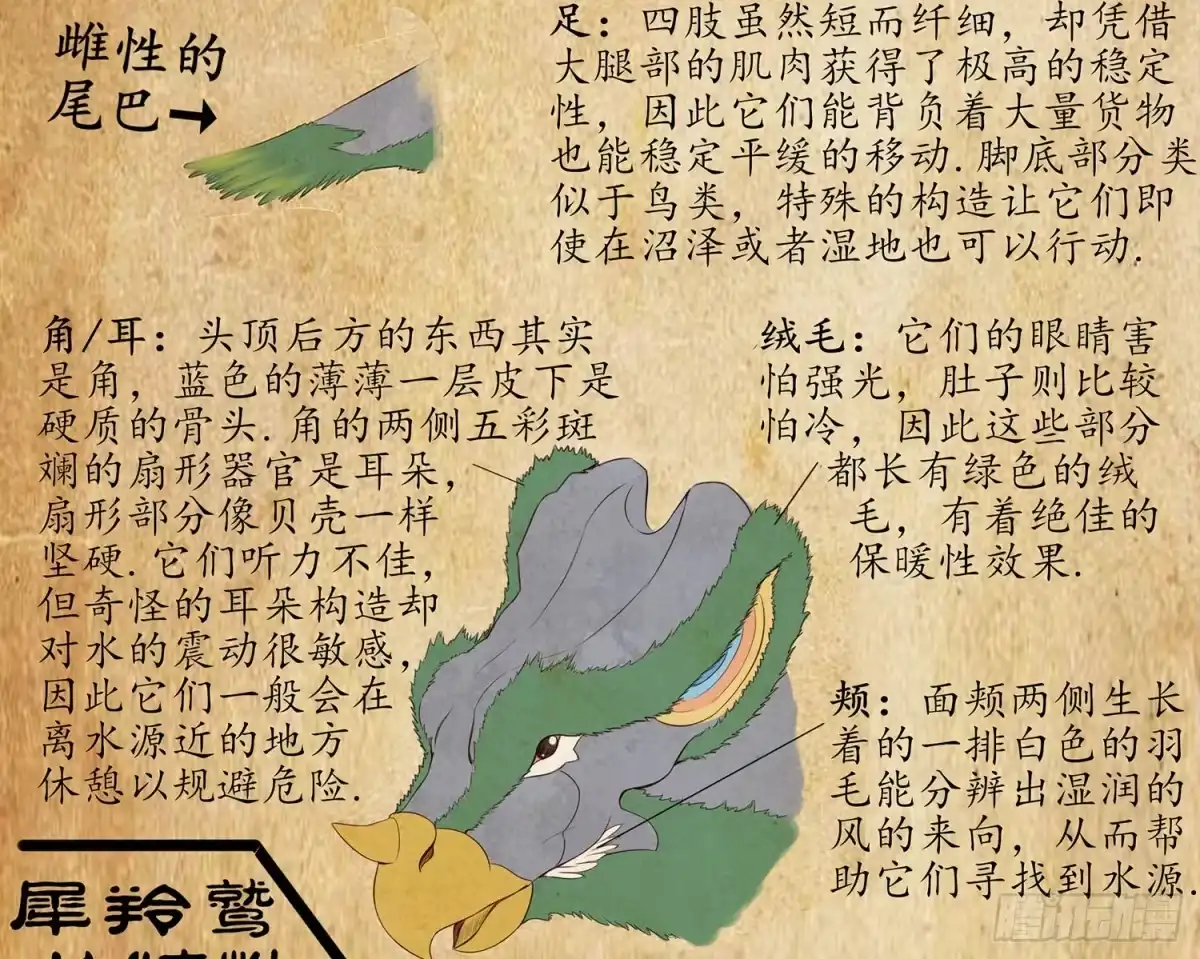 雌性的
尾巴→
足：四肢虽然短而纤细，却凭借
大腿部的肌肉获得了极高的稳定
性，因此它们能背负着大量货物
也能稳定平缓的移动.脚底部分类
似于鸟类，特殊的构造让它们即
使在沼泽或者湿地也可以行动.
角/耳：头顶后方的东西其实
是角，蓝色的薄薄一层皮下是
硬质的骨头.角的两侧五彩斑
斓的扇形器官是耳朵，
扇形部分像贝壳一样
坚硬.它们听力不佳，
但奇怪的耳朵构造却
对水的震动很敏感，
因此它们一般会在
离水源近的地方
休憩以规避危险.
绒毛：它们的眼睛害
怕强光，肚子则比较
怕冷，因此这些部分
都长有绿色的绒
毛，有着绝佳的
保暖性效果.
颊：面颊两侧生长
着的一排白色的羽
毛能分辨出湿润的
风的来向，从而帮
助它们寻找到水源.
犀羚鹫
腾讯动漫